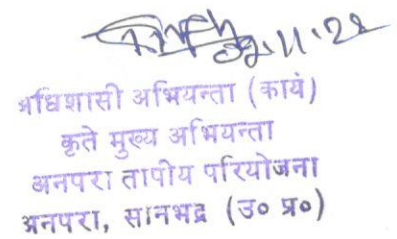 अधिशासी अभियन्ता (कार्य)
कृते मुख्य अभियन्ता
अनपरा तापीय परियोजना
अनपरा, सानभद्र (उ० प्र०)